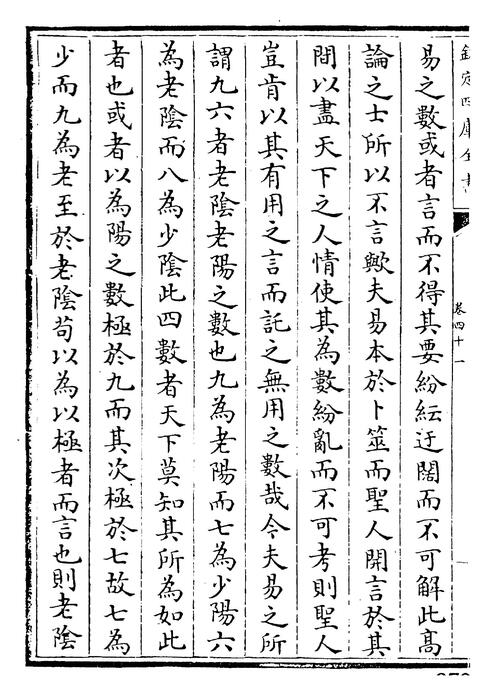 欽定四庫全書
卷四十一
易之數或者言而不得其要紛紜迂闊而不可解此高
論之士所以不言歟夫易本於卜筮而聖人開言於其
間以盡天下之人情使其為數紛亂而不可考則聖人
豈肯以其有用之言而託之無用之數哉今夫易之所
謂九六者老陰老陽之數也九為老陽而七為少陽六
為老陰而八為少陰此四數者天下莫知其所為如此
者也或者以為陽之數極於九而其次極於七故七為
少而九為老至於老陰苟以為以極者而言也則老陰